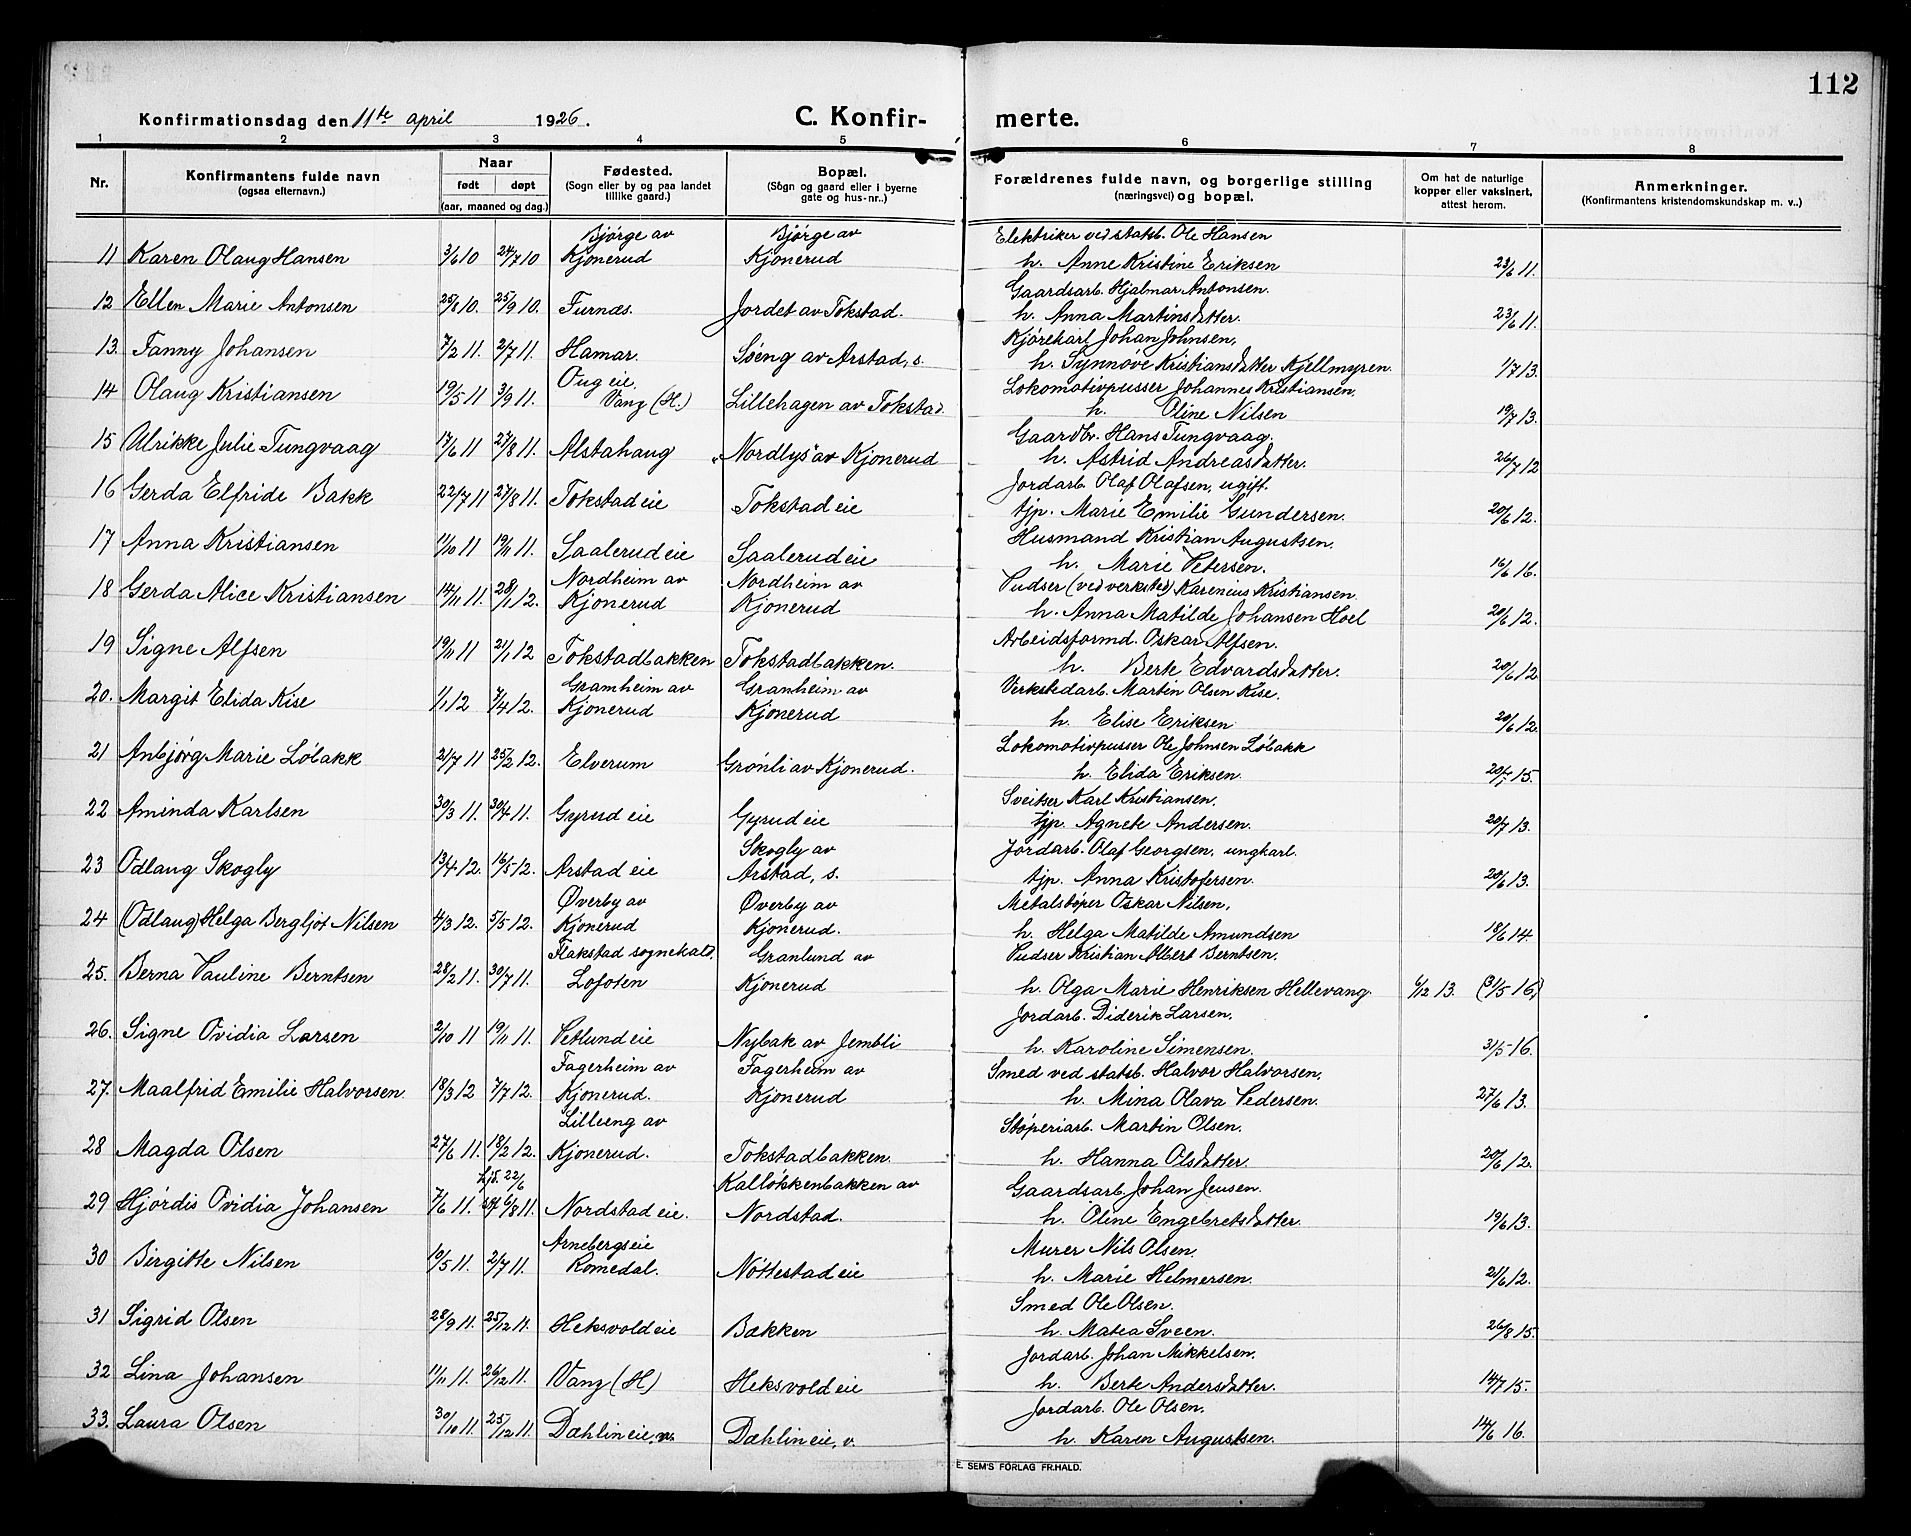 112
Konfirmationsdag den 11te april 1926. C. Konfir- merte.
1 2 3 4 5 6 7 8
Nr. Konfirmantens fulde navn (ogsaa efternavn.) Naar født døpt (aar, maaned og dag.) Fødested. (Sogn eller by og paa landet tillike gaard.) Bopæl. (Sogn og gaard eller i byerne gate og hus-nr..) Forældrenes fulde navn, og borgerlige stilling (næringsvei) og bopæl. Om hat de naturlige kopper eller vaksinert, attest herom. Anmerkninger. (Konfirmantens kristendomskundskap m. v..)
Bjørge av Bjørge av Elektriker ved statsb. Ole Hansen
11 Karen Olaug Hansen 3/6 10 24/7 10 Kjonerud Kjonerud h. Anne Kristine Eriksen 23/6 11.
Gaardsarb. Hjalmar Antonsen.
12 Ellen Marie Antonsen 25/8 10. 25/9 10. Furnæs. Jordet av Tokstad. h. Anna Martinsdatter. 23/6 11.
Kjørekarl Johan Johnsen,
13. Fanny Johansen 7/2 11. 2/7 11. Hamar. Søeng av Arstad, s. h. Synnøve Kristiansdatter Kjellmyren. 1/7 13.
Oug eie, Lokomotivpusser Johannes Kristiansen,
14 Olaug Kristiansen 19/5 11 3/9 11. Vang (H.) Lillehagen av Tokstad. h. Oline Nilsen 19/7 13.
Gaardbr. Hans Tungvaag.
15 Ulrikke Julie Tungvaag 17/6 11 27/8 11. Alstahaug "Nordlys" av Kjonerud h. Astrid Andreasdatter. 26/7 12
Jordarb. Olaf Olafsen, ugift.
16 Gerda Elfride Bakk 22/7 11 27/8 11. Tokstad eie Tokstad eie tjp. Marie Emilie Gundersen. 20/6 12.
Husmand Kristian Augustsen.
17 Anna Kristiansen 11/10 11 19/11 11. Saalerud eie Saalerud eie h. Marie Petersen. 16/6 16.
Nordheim av Nordheim av Pudser (ved verksted) Karenius Kristiansen.
18 Gerda Alice Kristiansen 14/11 11. 28/1 12. Kjonerud Kjonerud h. Anna Matilde Johansen Hoel 20/6 12.
Arbeidsformd. Oskar Alfsen.
19 Signe Alfsen 19/11 11 21/1 12 Tokstadbakken Tokstadbakken. h. Berte Edvardsdatter. 20/6 12
Gramheim av Granheim av Verkstedarb. Martin Olsen Kise.
20. Margit Elida Kise 1/1 12 7/4 12. Kjonerud Kjonerud h. Elise Eriksen 20/6 12.
Lokomotivpusser Ole Johnsen Løbakk
21 Anbjørg Marie Løbakk 21/7 11 25/2 12. Elverum Grønli av Kjonerud. h. Elida Eriksen. 15.
Sveitser Karl Kristiansen,
22 Aminda Karlsen 30/3 11. 30/4 11. Gyrud eie Gyrud eie tjp. Agnete Andersen. 20/7 13.
Skogly av Jordarb. Olaf Georgsen, ungkarl.
23 Odlaug Skogly 13/4 12. 16/5 12. Arstad eie Arstad, s. tjp. Anna Kristofersen. 20/6 13.
Øverby av Øverby av Metalstøper Oskar Nilsen,
24 (Odlaug) Helga Bergljot Nilsen 4/3 12. 5/5 12. Kjonerud Kjonerud. h. Helga Matilde Amundsen 18/6 14.
Flakstad sognekald, Granlund av Pudser Kristian Albert Berntsen,
25. Berna Pauline Berntsen 28/2 11. 30/7 11. Lofoten Kjonerud h. Olga Marie Henriksen Hellevang. 6/12 13. (3/5 16)
Jordarb. Diderik Larsen,
26. Signe Ovidia Larsen 2/10 11 19/11 11. Vetlund eie Nybak av Jembli h. Karoline Simensen. 31/5 16.
Fagerheim av Fagerheim av Smed ved statsb. Halvor Halvorsen,
27. Maalfrid Emilie Halvorsen. 18/3 12 7/7 12. Kjonerud. Kjonerud h. Mina Olava Pedersen. 27/6 13.
Lilleeng av Støperiarb. Martin Olsen.
28 Magda Olsen 27/6 11. 18/2 12. Kjonerud. Tokstadbakken. h. Hanna Olsdatter. 20/6 12.
Hjd. 22/6 Kalløkkenbakken av Gaardsarb. Johan Jensen.
29 Hjørdis Ovidia Johansen 7/6 11. 6/8 11. Nordstad eie. Nordstad. h. Oline Engebretsdatter. 19/6 13.
Arnebergseie Murer Nils Olsen.
30 Birgitte Nilsen 19/5 11. 2/7 11. Romedal. Nøttestad eie h. Marie Helmersen. 21/6 12.
Smed Ole Olsen.
31 Sigrid Olsen 28/9 11. 25/12 11. Heksvold eie Bækken h. Matea Sveen. 26/8 15.
Jordarb. Johan Mikkelsen.
32 Lina Johansen 11/11 11. 26/12 11. Vang (H) Heksvold eie h. Berte Andersdatter. 14/7 15.
Jordarb. Ole Olsen.
33. Laura Olsen 30/10 11. 25/12 11. Dæhlin eie, v. Dæhlin eie, v. h. Karen Augustsen. 14/6 16.
E. SEM'S FORLAG FR.HALD.